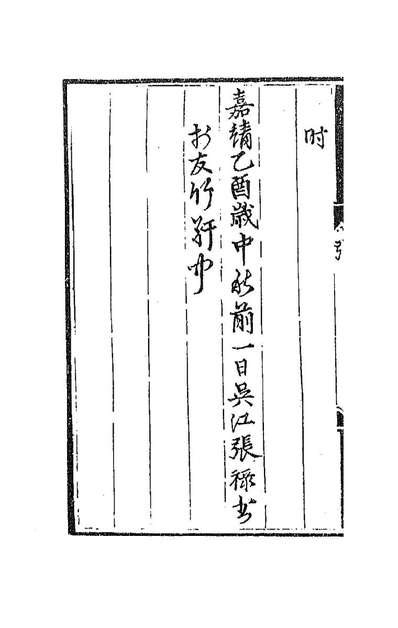 时
嘉靖乙酉歲中秋前一日吳江張祿书
於友竹軒中
引